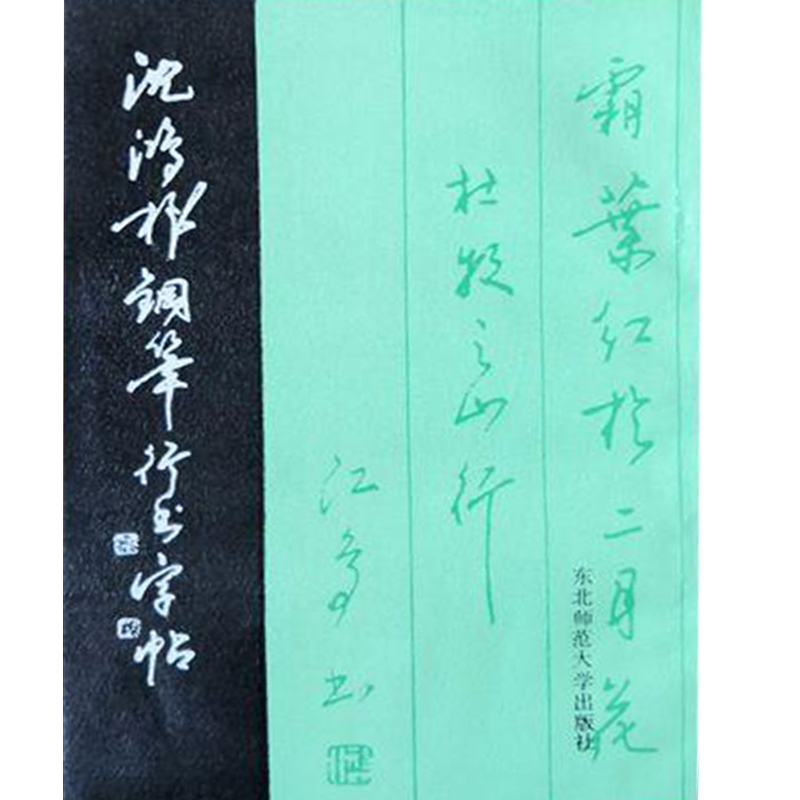 沈鸿根鋼筆行书字帖
霜葉红於二月花
杜牧之山行
江鸟书
东北师范大学出版社